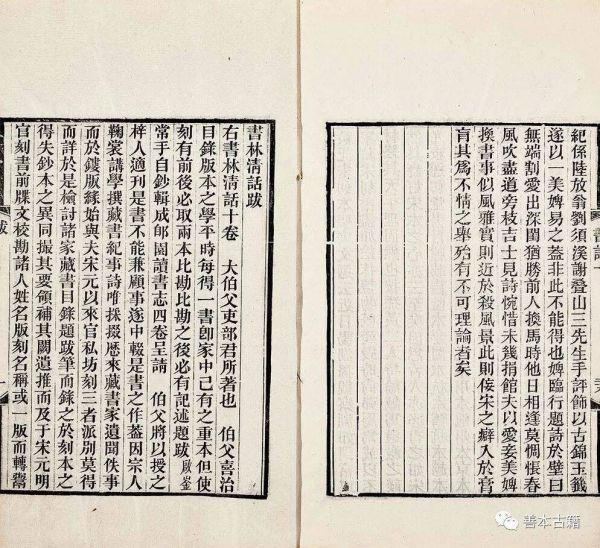 紀係陸放翁劉須溪謝疊山三先生手評飾以古錦玉籤
遂以一美婢易之蓋非此不能得也婢臨行題詩於壁曰
無端割愛出深閨猶勝前人換馬時他日相逢莫惆悵春
風吹盡道旁枝吉士見詩惋惜未幾捐館夫以愛妾美婢
換書事似風雅實則近於殺風景此則佞宋之癖入於膏
肓其爲不情之舉殆有不可理論者矣
書林清話跋
右書林清話十卷 大伯父吏部君所著也 伯父喜治
目錄版本之學平時每得一書卽家中已有之重本但使
刻有前後必取兩本比勘比勘之後必有記述題跋啟崟
常手自鈔輯成郋園讀書志四卷呈請 伯父將以授之
梓人適刊是書不能兼顧事遂中輟是書之作蓋因宗人
鞠裳講學撰藏書紀事詩唯採掇歷來藏書家遺聞佚事
而於鏤版緣始與夫宋元以來官私坊刻三者派別莫得
而詳於是檢討諸家藏書目錄題跋筆而錄之於刻本之
得失鈔本之異同撮其要領補其闕遺推而及于宋元明
官刻書前牒文校勘諸人姓名版刻名稱或一版而轉鬻
跋
一
善本古籍